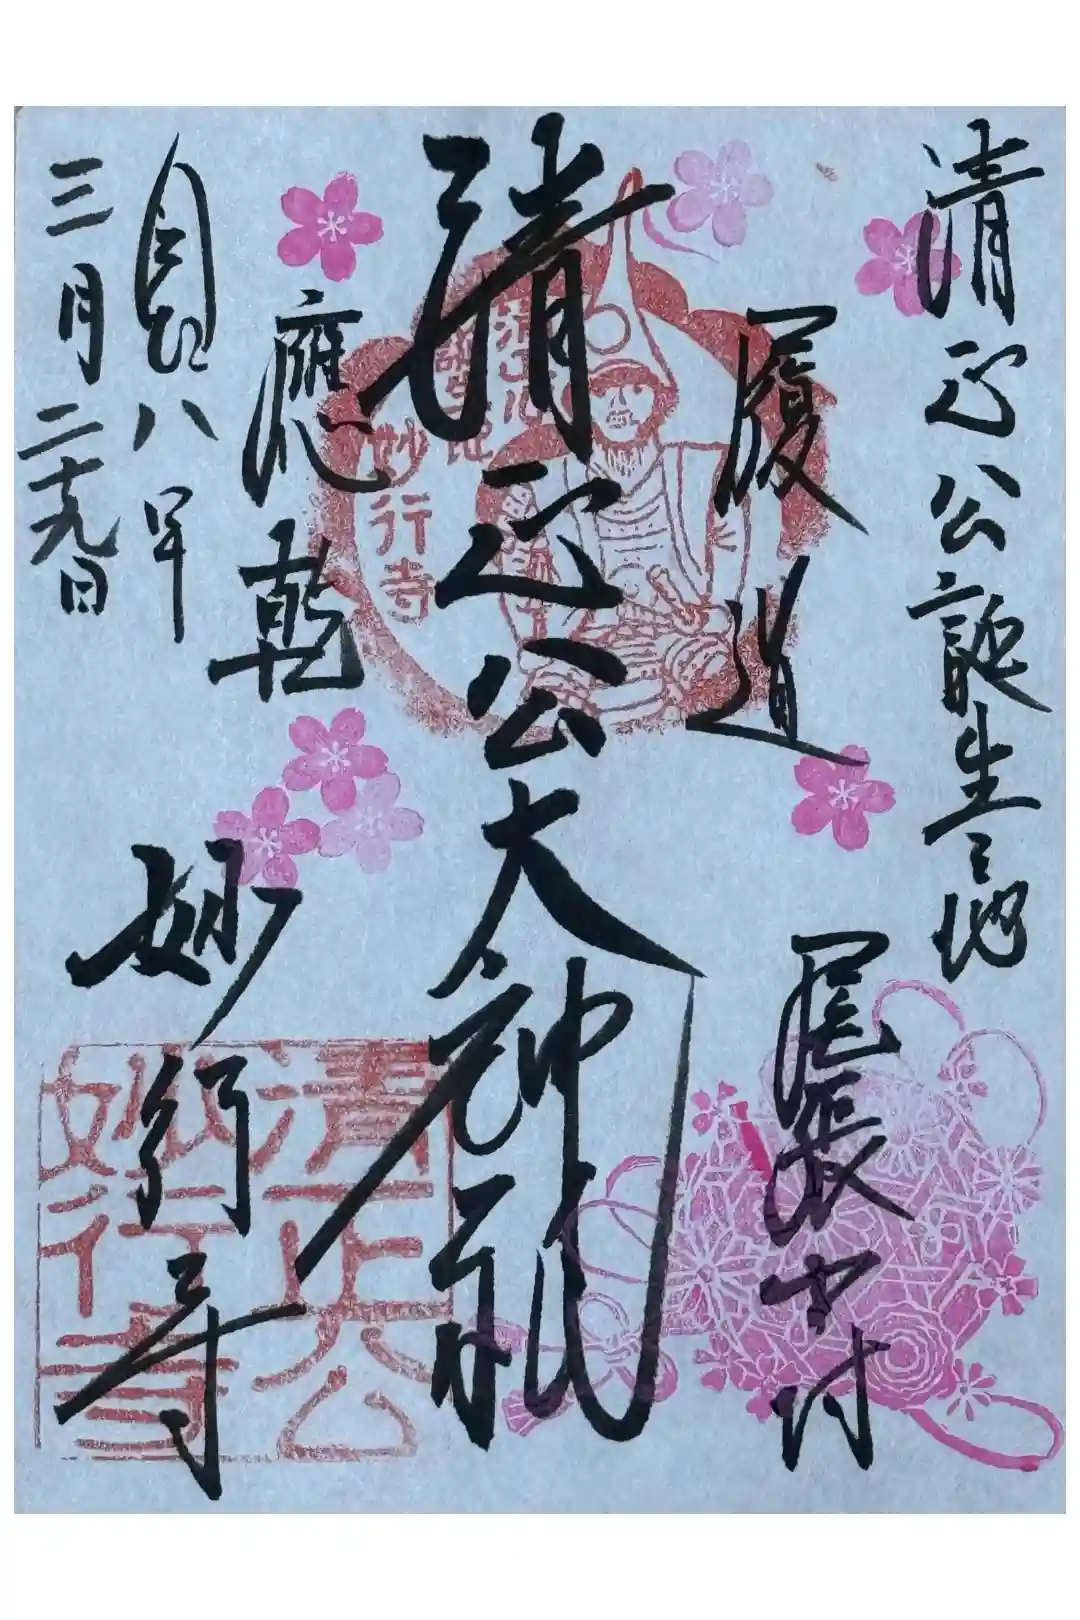 清正公誕生之地
履道
尾張中村
清正公大神祇
應乾
妙行寺
八年
三月二十九日
妙行寺
清正公
妙行寺